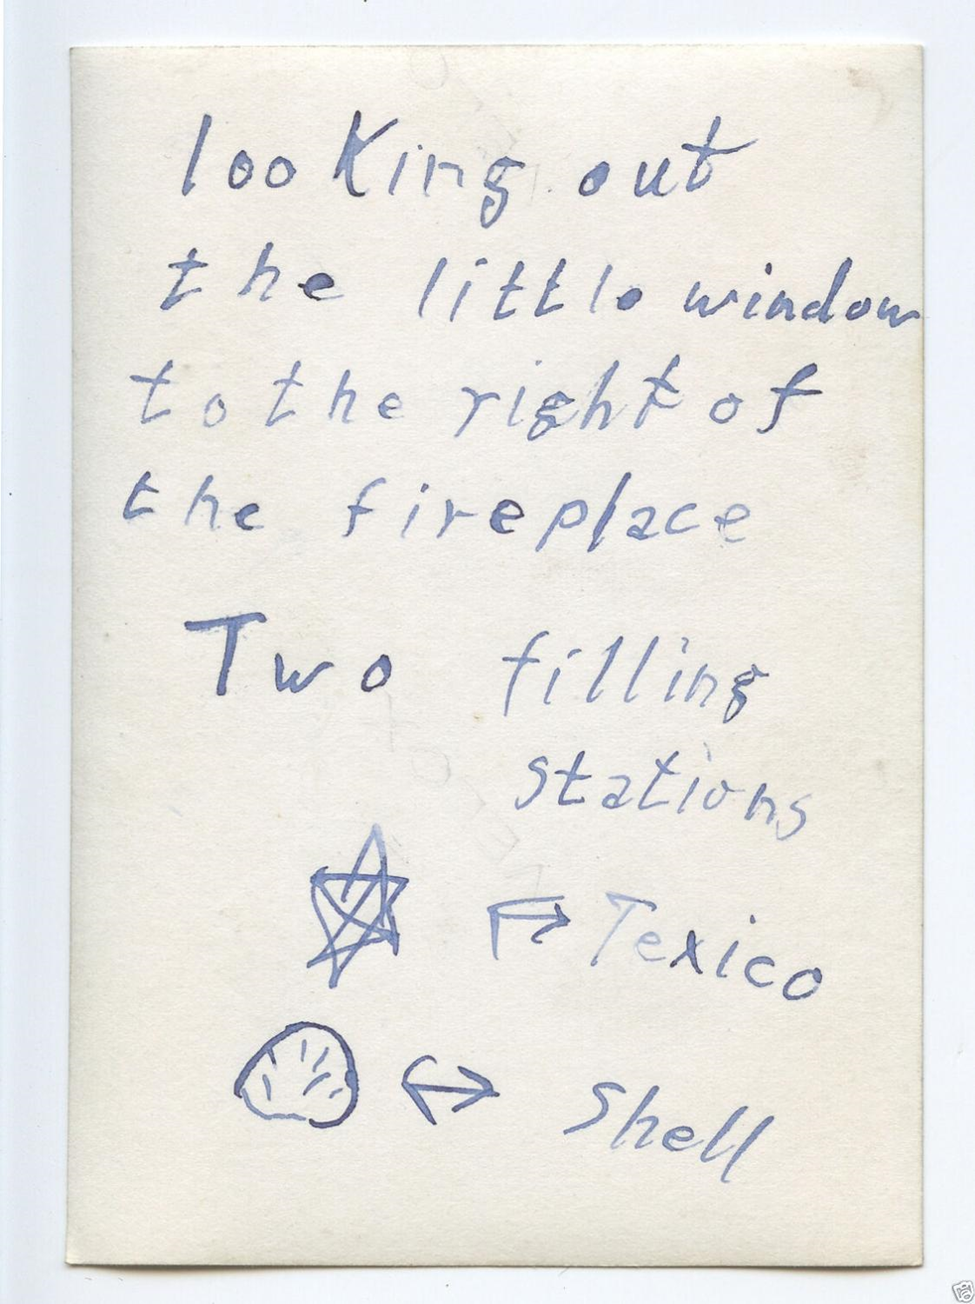 looking out
the little window
to the right of
the fireplace
Two filling
stations
Texico
Shell